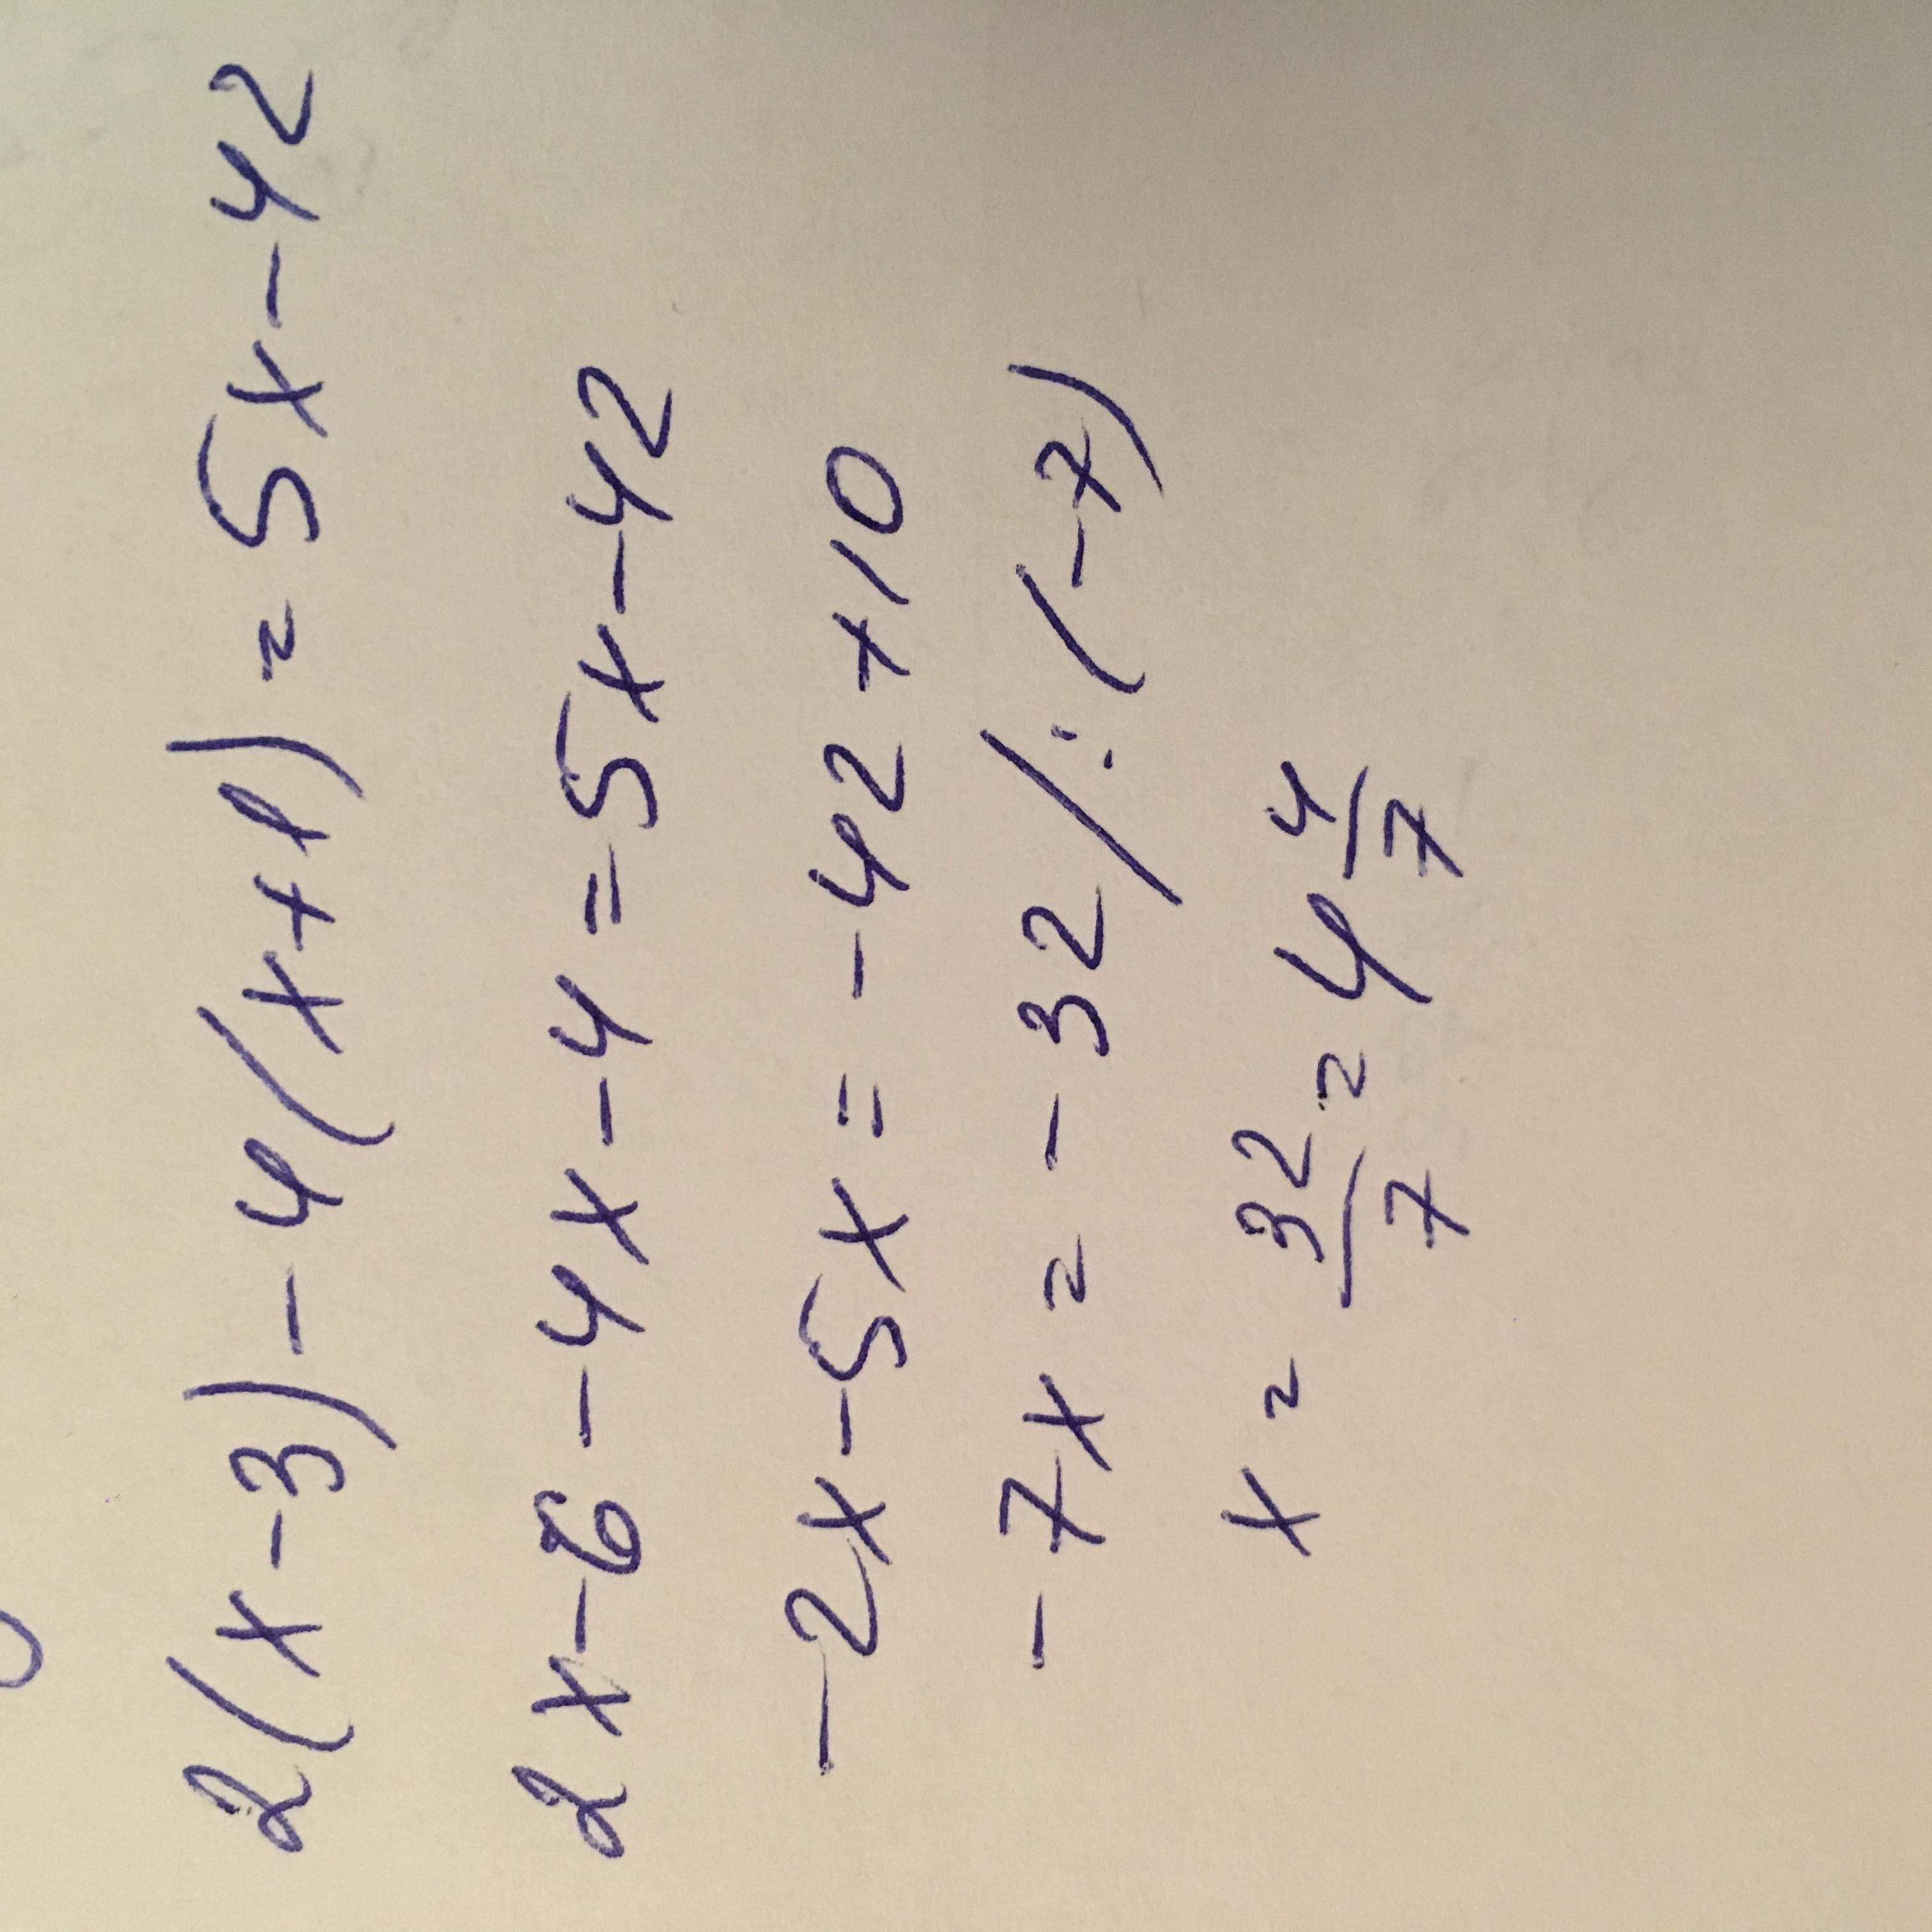 2(x-3)-4(x+1)=5x-42
2x-6-4x-4=5x-42
-2x-5x=-42+10
-7x=-32/:(-7)
x=32/7=4 4/7